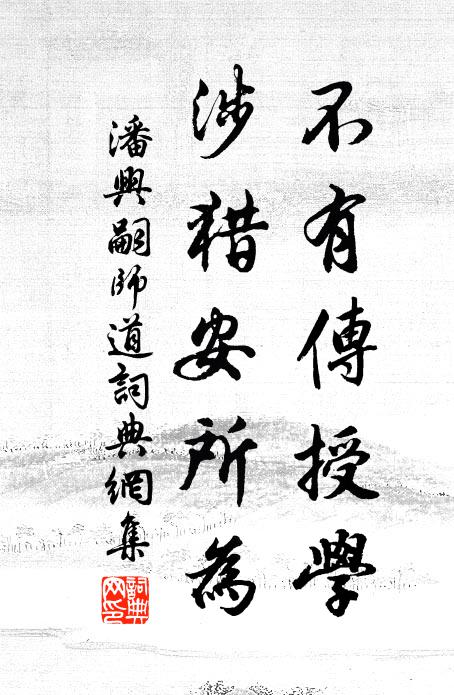 不有傳授學
涉猎安所為
潘興嗣師道詞典網集
詞典